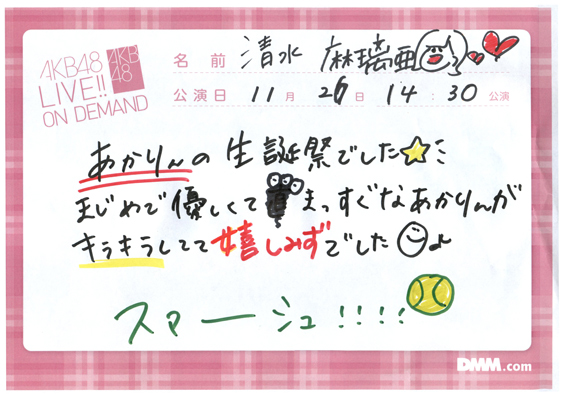 AKB48
LIVE!!
ON DEMAND
AKB
48
名前 清水 麻璃亜
公演日 11月 26日 14:30 公演
あかりんの生誕祭でした
まじめで優しくて まっすぐなあかりんが
キラキラしてて嬉しみずでした
スマーシュ!!!!
DMM.com